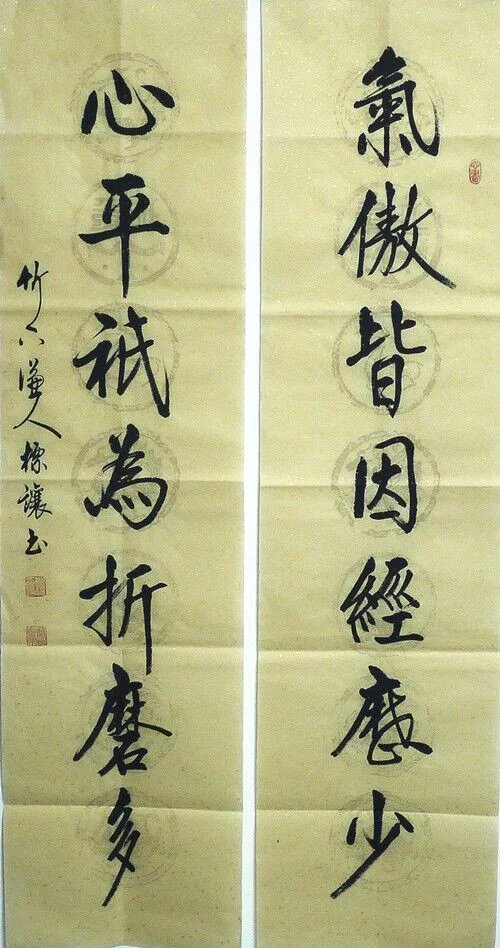 氣傲皆因經歷少
心平祇為折磨多
竹下謙人標讓書